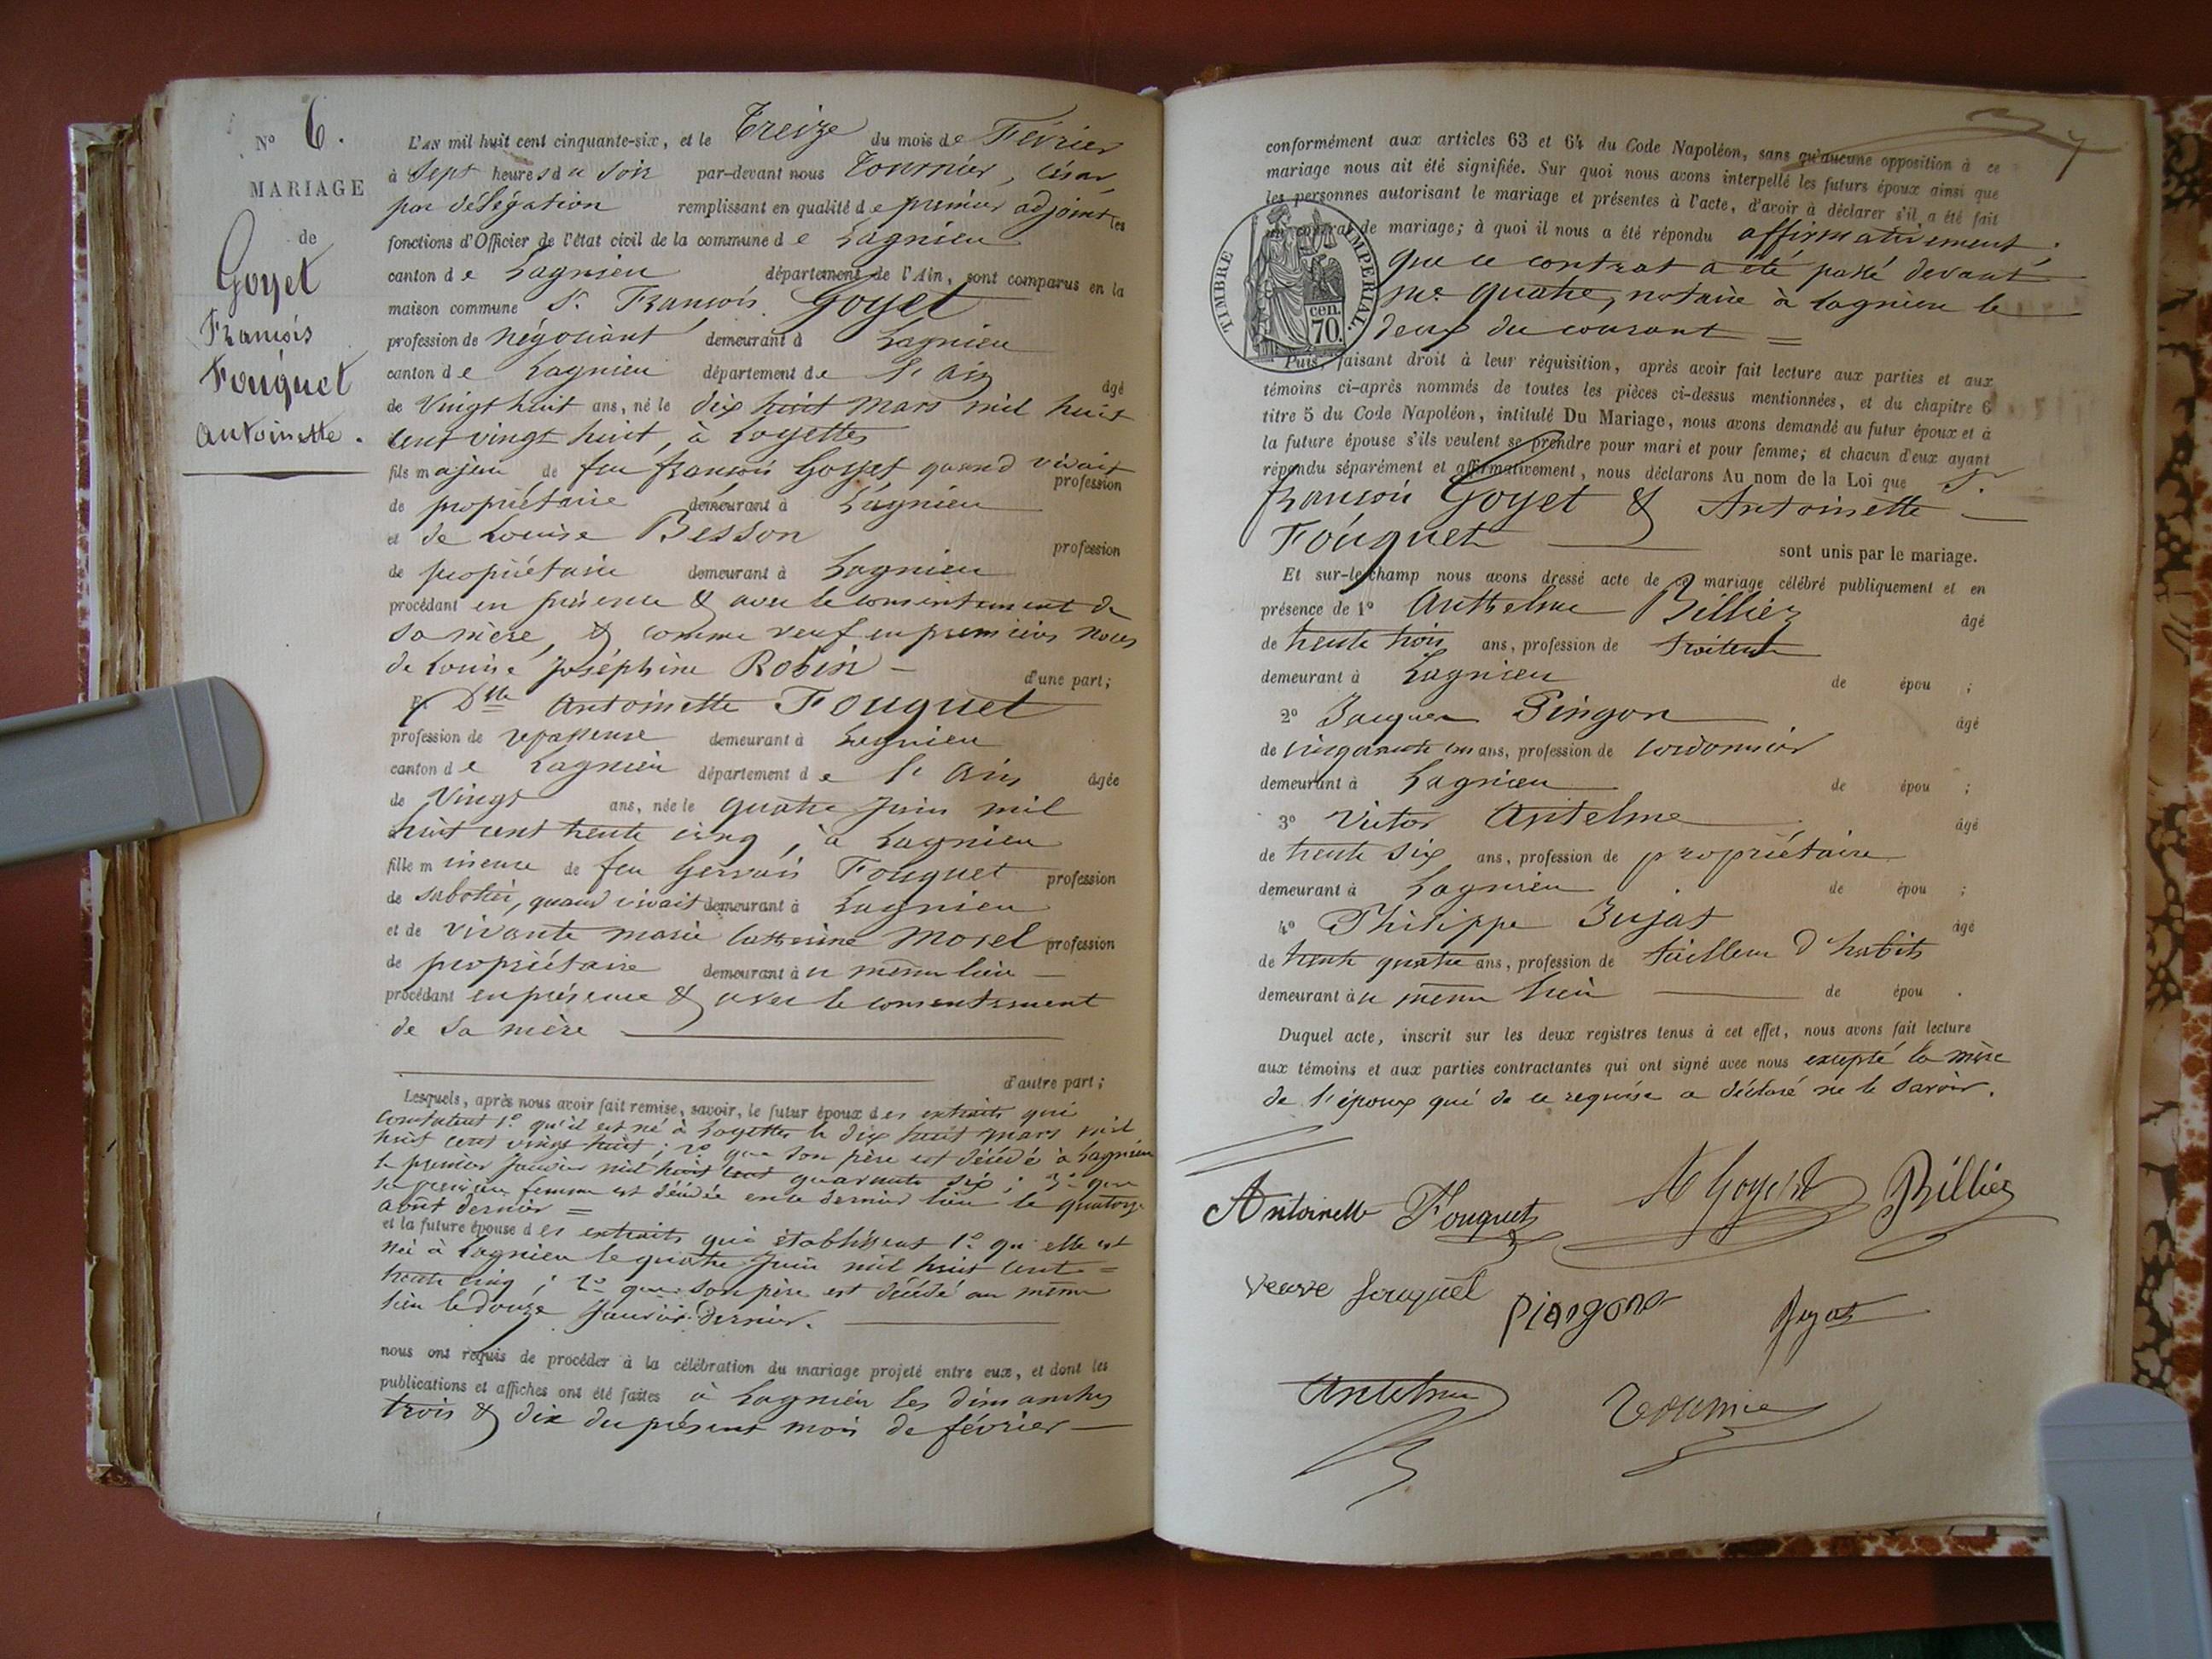 N° 6.
MARIAGE
de
Goyet
François
Fouquet
Antoinette.
L'AN mil huit cent cinquante-six, et le Treize du mois de Février
à Sept heures du Soir par-devant nous Tournier, César,
par délégation remplissant en qualité de premier adjoint les
fonctions d'Officier de l'état civil de la commune de Lagnieu
canton de Lagnieu département de l'Ain, sont comparus en la
maison commune Sr. François Goyet
profession de négociant demeurant à Lagnieu
canton de Lagnieu département de l'Ain âgé
de Vingt huit ans, né le dix huit Mars mil huit
cent vingt huit, à Loyettes
fils majeur de feu françois Goyet quand vivait profession
de propriétaire demeurant à Lagnieu
et de Louise Besson profession
de propriétaire demeurant à Lagnieu
procédant en présence & avec le consentement de
sa mère, & comme veuf en premières noces
de Louise Joséphine Robin – d'une part;
Et Dlle Antoinette Fouquet
profession de repasseuse demeurant à Lagnieu
canton de Lagnieu département de l'Ain âgée
de Vingt ans, née le quatre Juin mil
huit cent trente cinq, à Lagnieu
fille mineure de feu Gervais Fouquet profession
de sabotier, quand vivait demeurant à Lagnieu
et de vivante marie Catherine Morel profession
de propriétaire demeurant à ce même lieu –
procédant en présence & avec le consentement
de sa mère
d'autre part;
Lesquels, après nous avoir fait remise, savoir, le futur époux des extraits qui
constatent 1° qu'il est né à Loyettes le dix huit mars mil
huit cent vingt huit; 2° que son père est décédé à Lagnieu
le premier Janvier mil huit cent quarante six; 3° que
sa première femme est décédée en ce dernier lieu le quatorze
août dernier =
et la future épouse des extraits qui établissent 1° qu'elle est
née à Lagnieu le quatre Juin mil huit cent =
trente cinq; 2° que son père est décédé au même
lieu le douze Janvier dernier.
nous ont requis de procéder à la célébration du mariage projeté entre eux, et dont les
publications et affiches ont été faites à Lagnieu les dimanches
trois & dix du présent mois de février –
7
conformément aux articles 63 et 64 du Code Napoléon, sans qu'aucune opposition à ce
mariage nous ait été signifiée. Sur quoi nous avons interpellé les futurs époux ainsi que
les personnes autorisant le mariage et présentes à l'acte, d'avoir à déclarer s'il a été fait
un contrat de mariage; à quoi il nous a été répondu affirmativement;
que ce contrat a été passé devant
Me Quatre, notaire à Lagnieu le
deux du courant =
TIMBRE IMPERIAL.
cen.
70.
Puis, faisant droit à leur réquisition, après avoir fait lecture aux parties et aux
témoins ci-après nommés de toutes les pièces ci-dessus mentionnées, et du chapitre 6
titre 5 du Code Napoléon, intitulé Du Mariage, nous avons demandé au futur époux et à
la future épouse s'ils veulent se prendre pour mari et pour femme; et chacun d'eux ayant
répondu séparément et affirmativement, nous déclarons Au nom de la Loi que Sr.
François Goyet & Antoinette –
Fouquet sont unis par le mariage.
Et sur-le-champ nous avons dressé acte de ce mariage célébré publiquement et en
présence de 1° Anthelme Billiez âgé
de trente trois ans, profession de traiteur
demeurant à Lagnieu de épou ;
2° Jacques Pingon âgé
de cinquante un ans, profession de cordonnier
demeurant à Lagnieu de épou ;
3° Victor Antelme âgé
de trente six ans, profession de propriétaire
demeurant à Lagnieu de épou ;
4° Philippe Jujat âgé
de trente quatre ans, profession de tailleur d'habits
demeurant à ce même lieu de épou .
Duquel acte, inscrit sur les deux registres tenus à cet effet, nous avons fait lecture
aux témoins et aux parties contractantes qui ont signé avec nous excepté la mère
de l'époux qui de ce requise a déclaré ne le savoir.
Antoinette Fouquet Goyet Billiez
veuve fouquet pingon Jujat
Antelme Tournier